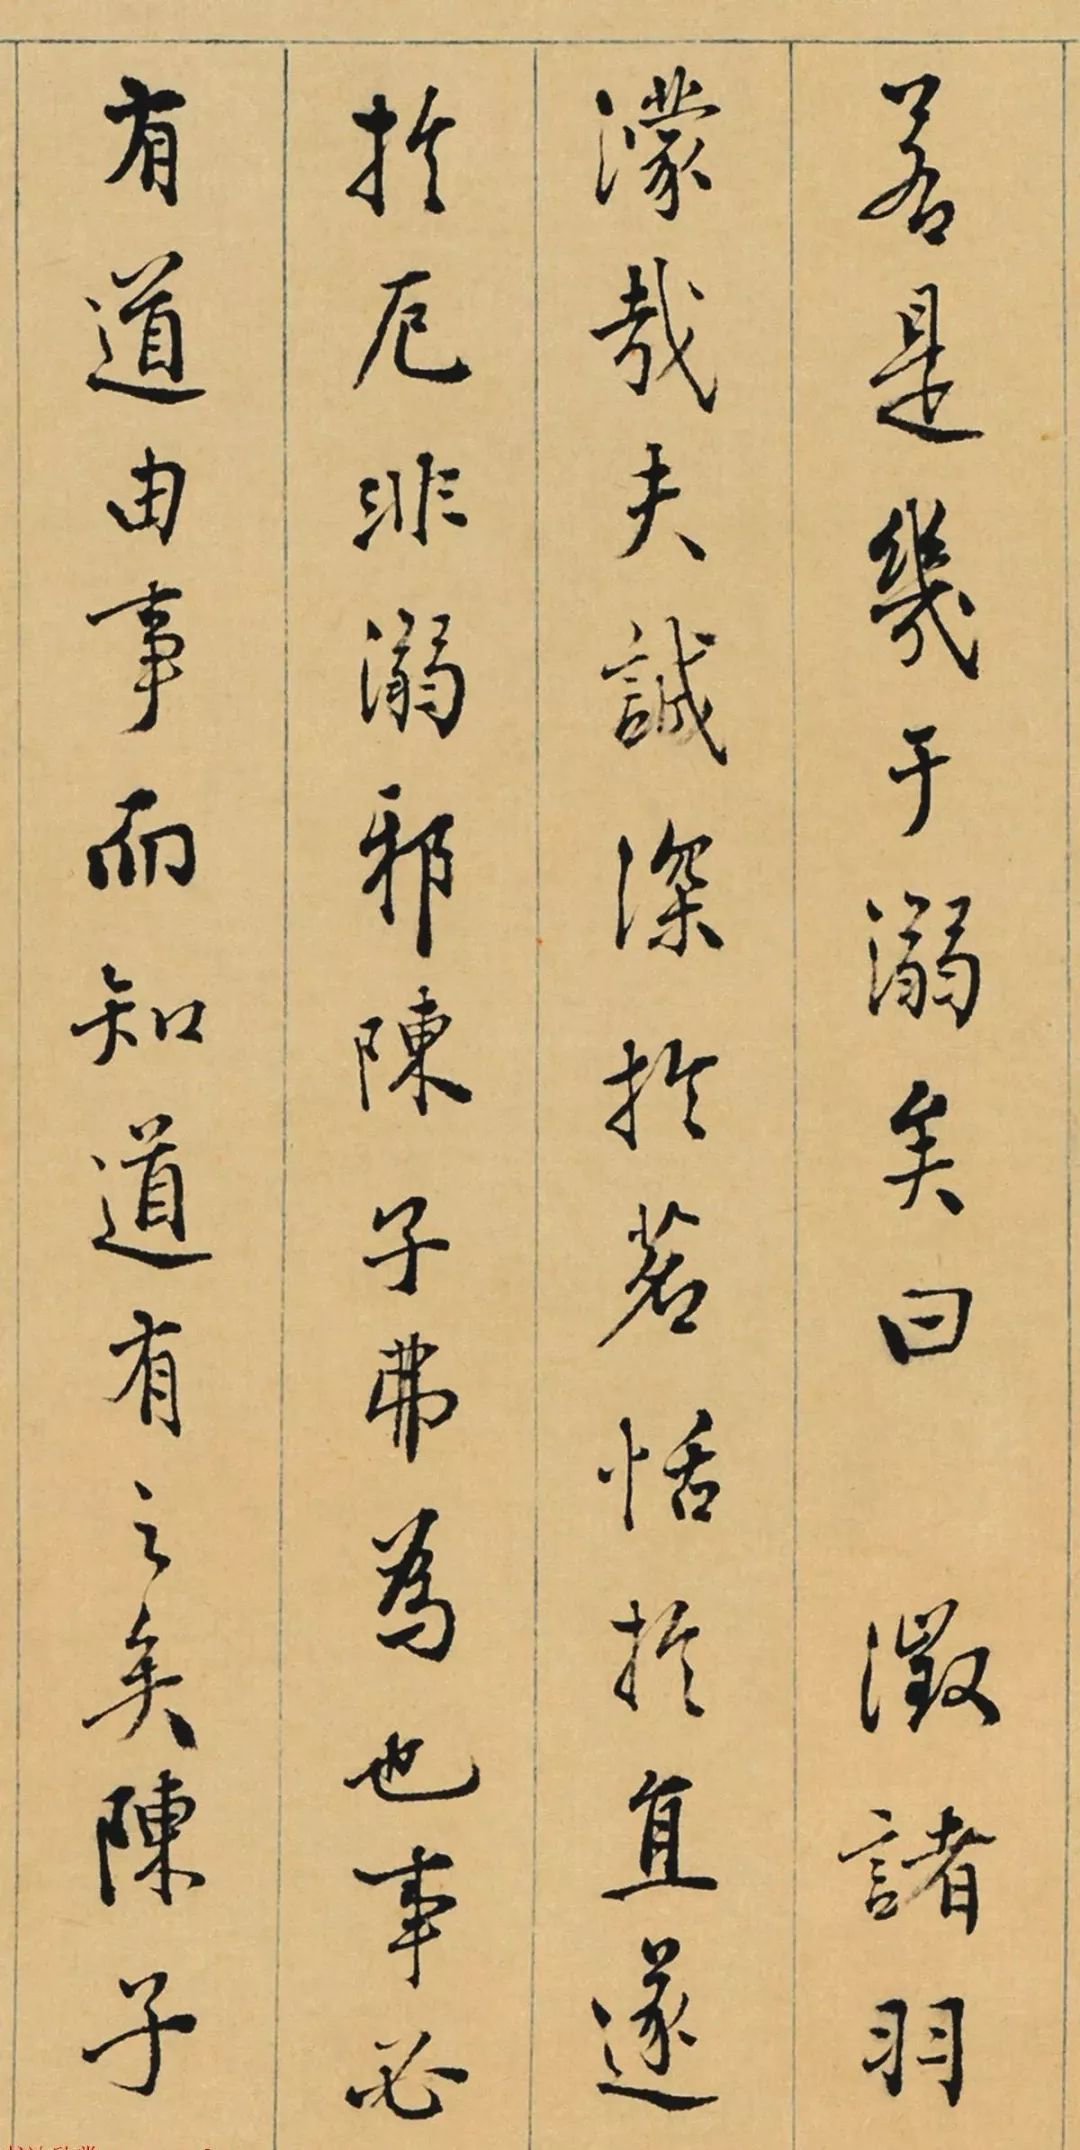 若是幾于溺矣曰 澂諸羽
濛哉夫誠深扵茗恬扵直遂
扵厄非溺邪陳子弗為也事必
有道由事而知道有之矣陳子